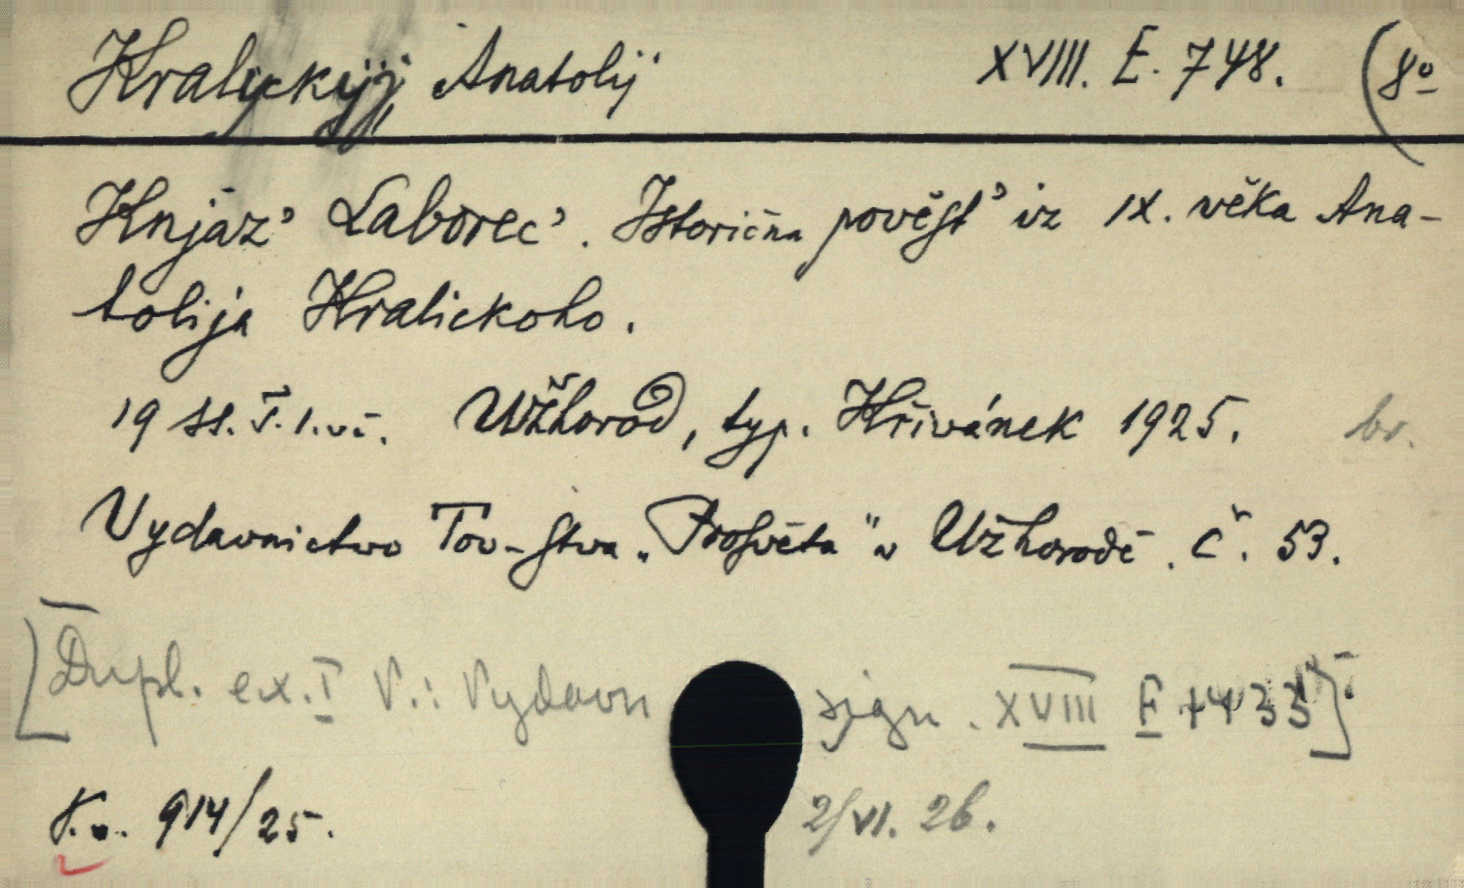 Kralyckyj, Anatolij XVIII. E. 748. (8º
Knjàz' Laborec'. Istorična pověst' iz IX. věka Ana-
tolija Kralickoho.
19 st. T. l. vč. Užhorod, typ. Křivánek 1925. br.
Vydavnictwo Tov-stva „Prosvěta" v Užhorodě. Č. 53.
[Dupl. ex. I V.: Vydavn sign. XVIII E
914/25. 2/VI. 26.